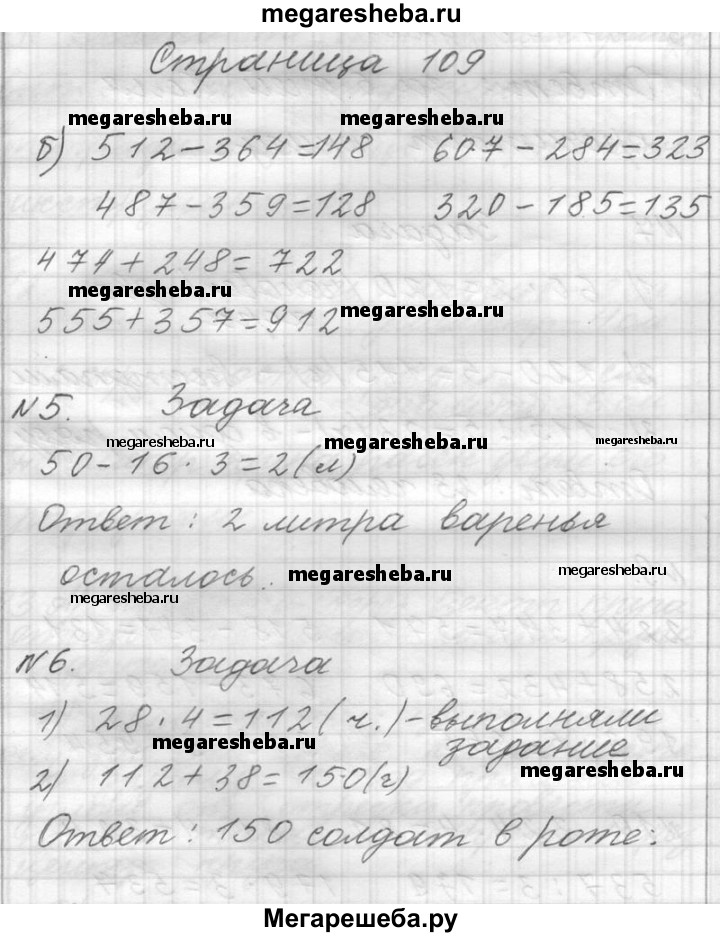 megaresheba.ru
Страница 109
megaresheba.ru megaresheba.ru
б) 512 - 364 = 148 607 - 284 = 323
487 - 359 = 128 320 - 185 = 135
474 + 248 = 722
megaresheba.ru megaresheba.ru
555 + 357 = 912
№5. Задача
megaresheba.ru megaresheba.ru megaresheba.ru
50 - 16 · 3 = 2 (л)
Ответ: 2 литра варенья
осталось. megaresheba.ru
megaresheba.ru
№6. Задача
1) 28 · 4 = 112 (ч.) - выполняли
megaresheba.ru задание
2) 112 + 38 = 150 (ч) megaresheba.ru
Ответ: 150 солдат в роте.
Мегарешеба.ру